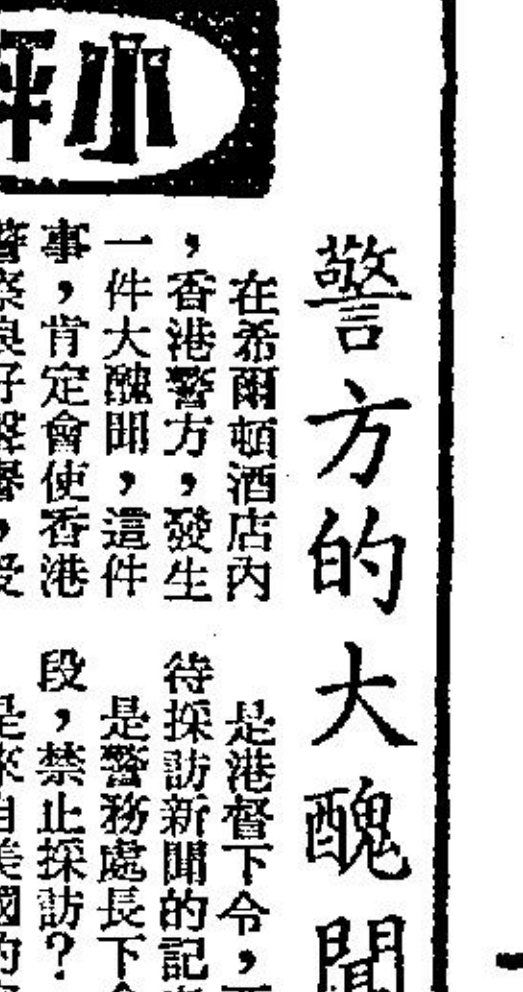 小評
警方的大醜聞
在希爾頓酒店內
，香港警方，發生
一件大醜聞，這件
事，肯定會使香港
警察良好聲譽，受
是港督下令，
待採訪新聞的記
是警務處長下令
段，禁止採訪？
是來自美國的